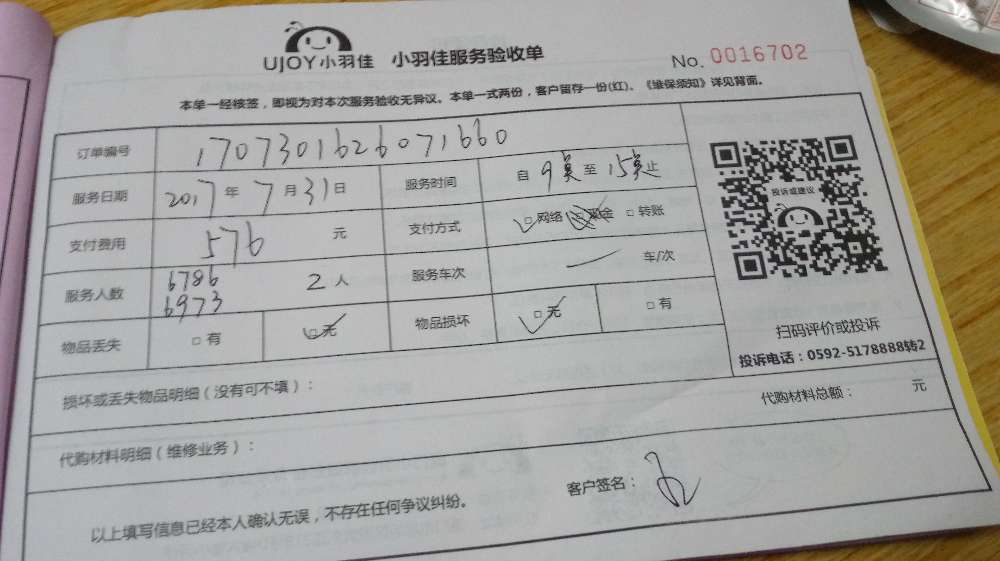 UJOY小羽佳 小羽佳服务验收单 No. 0016702
本单一经核签，即视为对本次服务验收无异议。本单一式两份，客户留存一份(红)。《维保须知》详见背面。
订单编号 1707301626071660
服务日期 2017年7月31日 服务时间 自9点至15点止
支付费用 576 元 支付方式 □网络 □现金 □转账
服务人数 6786 6973 2人 服务车次 车/次
物品丢失 □有 □无 物品损坏 □无 □有
投诉或建议
扫码评价或投诉
投诉电话：0592-5178888转2
损坏或丢失物品明细（没有可不填）：
代购材料明细（维修业务）： 代购材料总额： 元
以上填写信息已经本人确认无误，不存在任何争议纠纷。 客户签名：